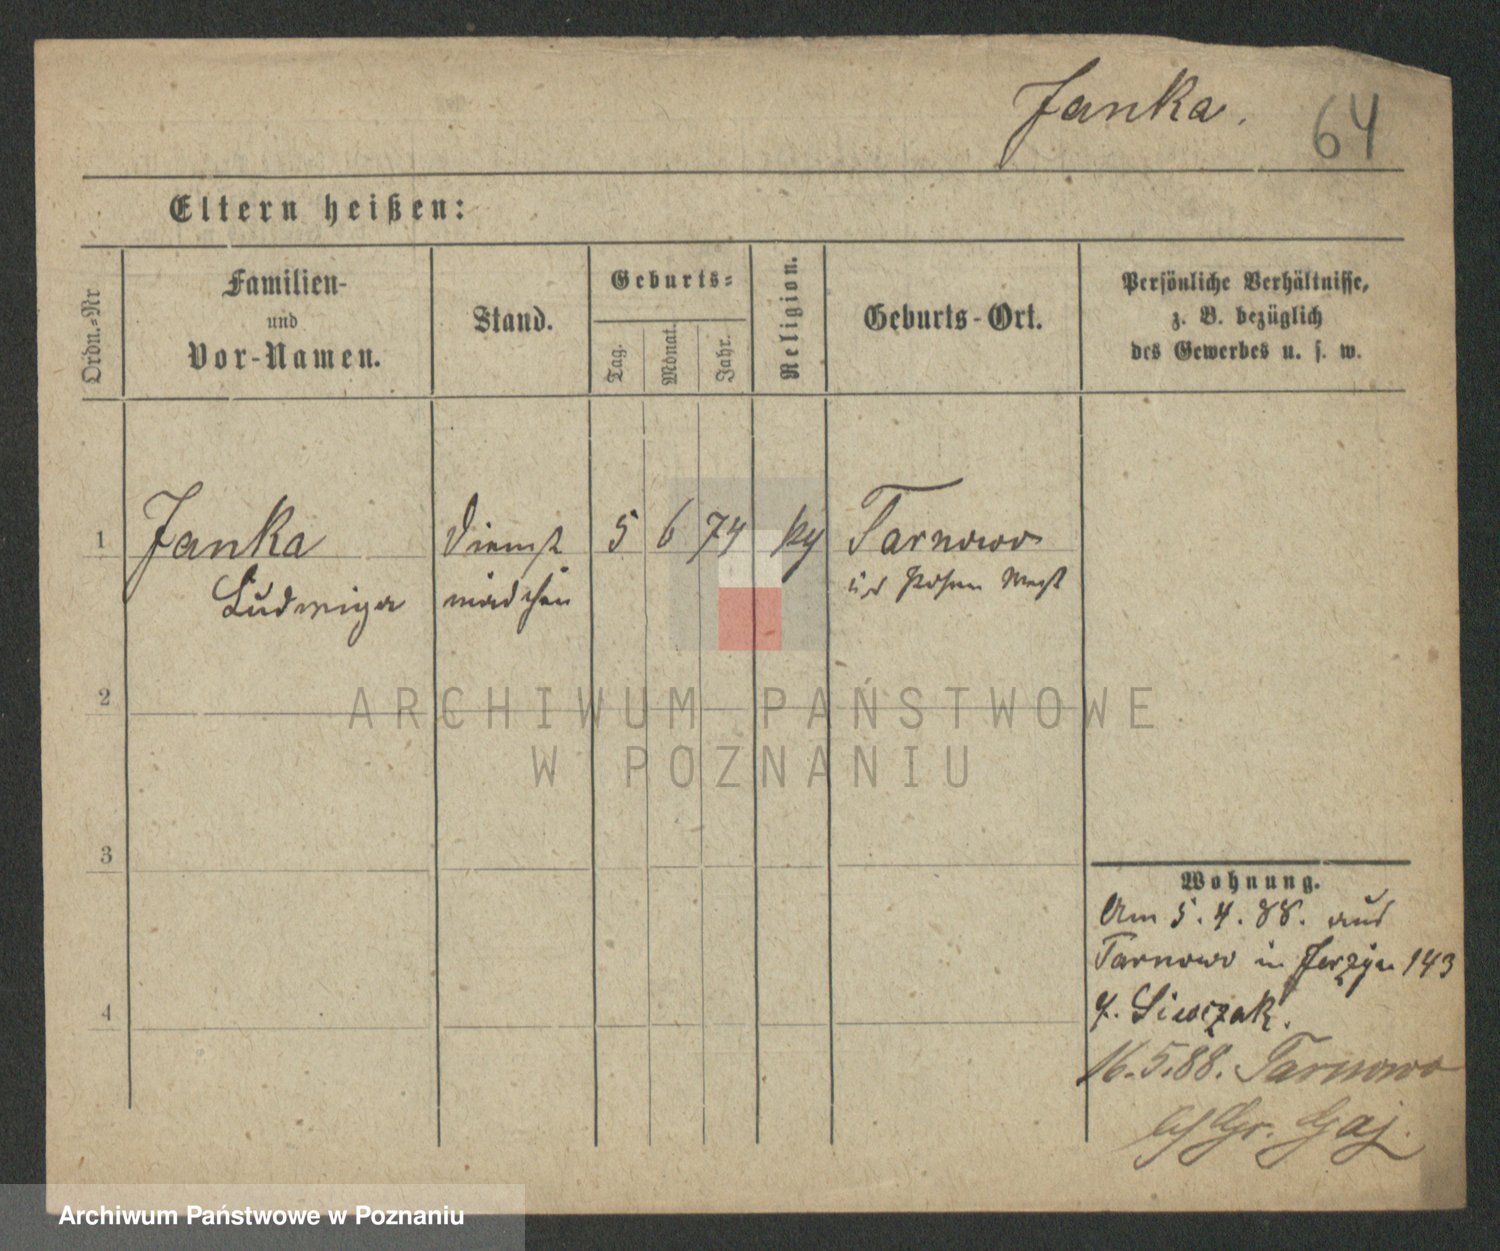 Janka.
64
Eltern heißen:
Ordn.=Nr
Familien-
und
Vor-Namen.
Stand.
Geburts=
Tag.
Monat.
Jahr.
Religion.
Geburts-Ort.
Persönliche Verhältnisse,
z. B. bezüglich
des Gewerbes u. s. w.
1
Janka
Ludwiga
Dienst
mädchen
5
6
74
Tarnowo
Posen West
2
3
4
Wohnung.
Am 5.4.88. aus
Tarnowo in Jerzyce 143
16.5.88. Tarnowo
Gr. Gaj.
ARCHIWUM PAŃSTWOWE
W POZNANIU
Archiwum Państwowe w Poznaniu